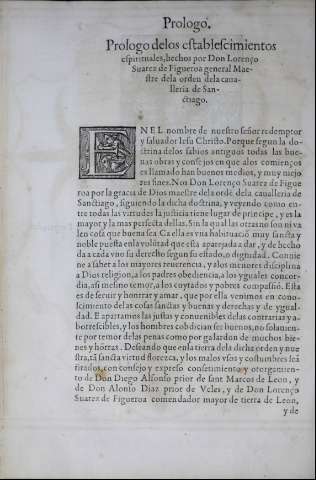 Prologo.
Prologo delos establescimientos
espirituales, hechos por Don Lorenço
Suarez de Figueroa general Mae-
stre dela orden dela caua-
lleria de San-
ctiago.
EN EL nombre de nuestro señor redemptor
y saluador Iesu Christo. Porque segun la do-
ctrina delos sabios antiguos todas las bue-
nas obras y consejos en que alos comienços
es llamado han buenos medios, y muy mejo
res fines. Nos Don Lorenço Suarez de Figue
roa por la gracia de Dios maestre dela ordē dela caualleria de
Sanctiago, siguiendo la dicha doctrina, y veyendo como en-
tre todas las virtudes la justicia tiene lugar de principe, y es la
mayor y la mas perfecta dellas. Sin la qual las otras no son ni va
len cosa que buena sea. Ca ella es vna habituació muy sancta y
noble puesta enla volūtad que esta aparejada a dar, y de hecho
da a cada vno su derecho segun su estado, o dignidad. Conuie
ne a saber a los mayores reuerencia, y alos menores disciplina
a Dios religion, a los padres obediencia, a los yguales concor-
dia, asi mesmo temor, a los cuytados y pobres compassió. Esta
es de seruir y honrrar y amar, que por ella venimos en cono-
scimiento delas cosas sanctas y buenas y derechas y de ygual-
dad. E apartamos las justas y conuenibles delas contrarias y a-
borrescibles, y los hombres cobdician ser buenos, no solamēte
por temor delas penas como por galardon de muchos bie-
nes y hōrras. Deseando que enla tierra dela dicha orden y nue
stra, tā sancta virtud florezca, y los malos vsos y costumbres seā
tirados, con consejo y expreso consetimiento y otorgamien-
to de Don Diego Alfonso prior de sant Marcos de Leon, y
de Don Alonso Diaz prior de Vcles, y de Don Lorenço
Suarez de Figueroa comendador mayor de tierra de Leon,
y de